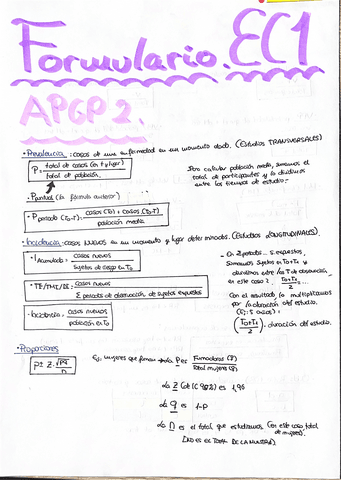 Formulario. EC1
APGP 2.
• Prevalencia : casos de una enfermedad en un momento dado. (Estudios TRANSVERSALES)
P = total de casos (en t y lugar) / total de población.
Para calcular población media, sumamos el
total de participantes y lo dividimos
entre los tiempos de estudio.
→ Puntual (la fórmula anterior)
• P periodo (T0-T) = casos (T0) + casos (T0-T) / población media
• Incidencia : casos nuevos en un momento y lugar determinados. (Estudios LONGITUDINALES).
• I Acumulada = casos nuevos / Sujetos de riesgo en T0
• = casos nuevos / Σ periodos de observación de sujetos expuestos
• Incidencia = casos nuevos / población en T0
- En 2 periodos S. expuestos,
Sumamos Sujetos en T0 + T1 y
dividimos entre los T de observación,
en este caso 2. T0+T1 / 2 ...
Con el resultado, lo multiplicamos
por la duración del estudio.
(T0+T1 / 2) · duración del estudio.
• Proporciones
P ± Z · √pq / n
Ej: mujeres que fuman → La P es Fumadoras / Total mujeres
La Z (de IC 95%) es 1,96
La q es 1-P
La n es el total que estudiamos (en este caso total
de mujeres).
¡NO ES EL TOTAL DE LA MUESTRA!